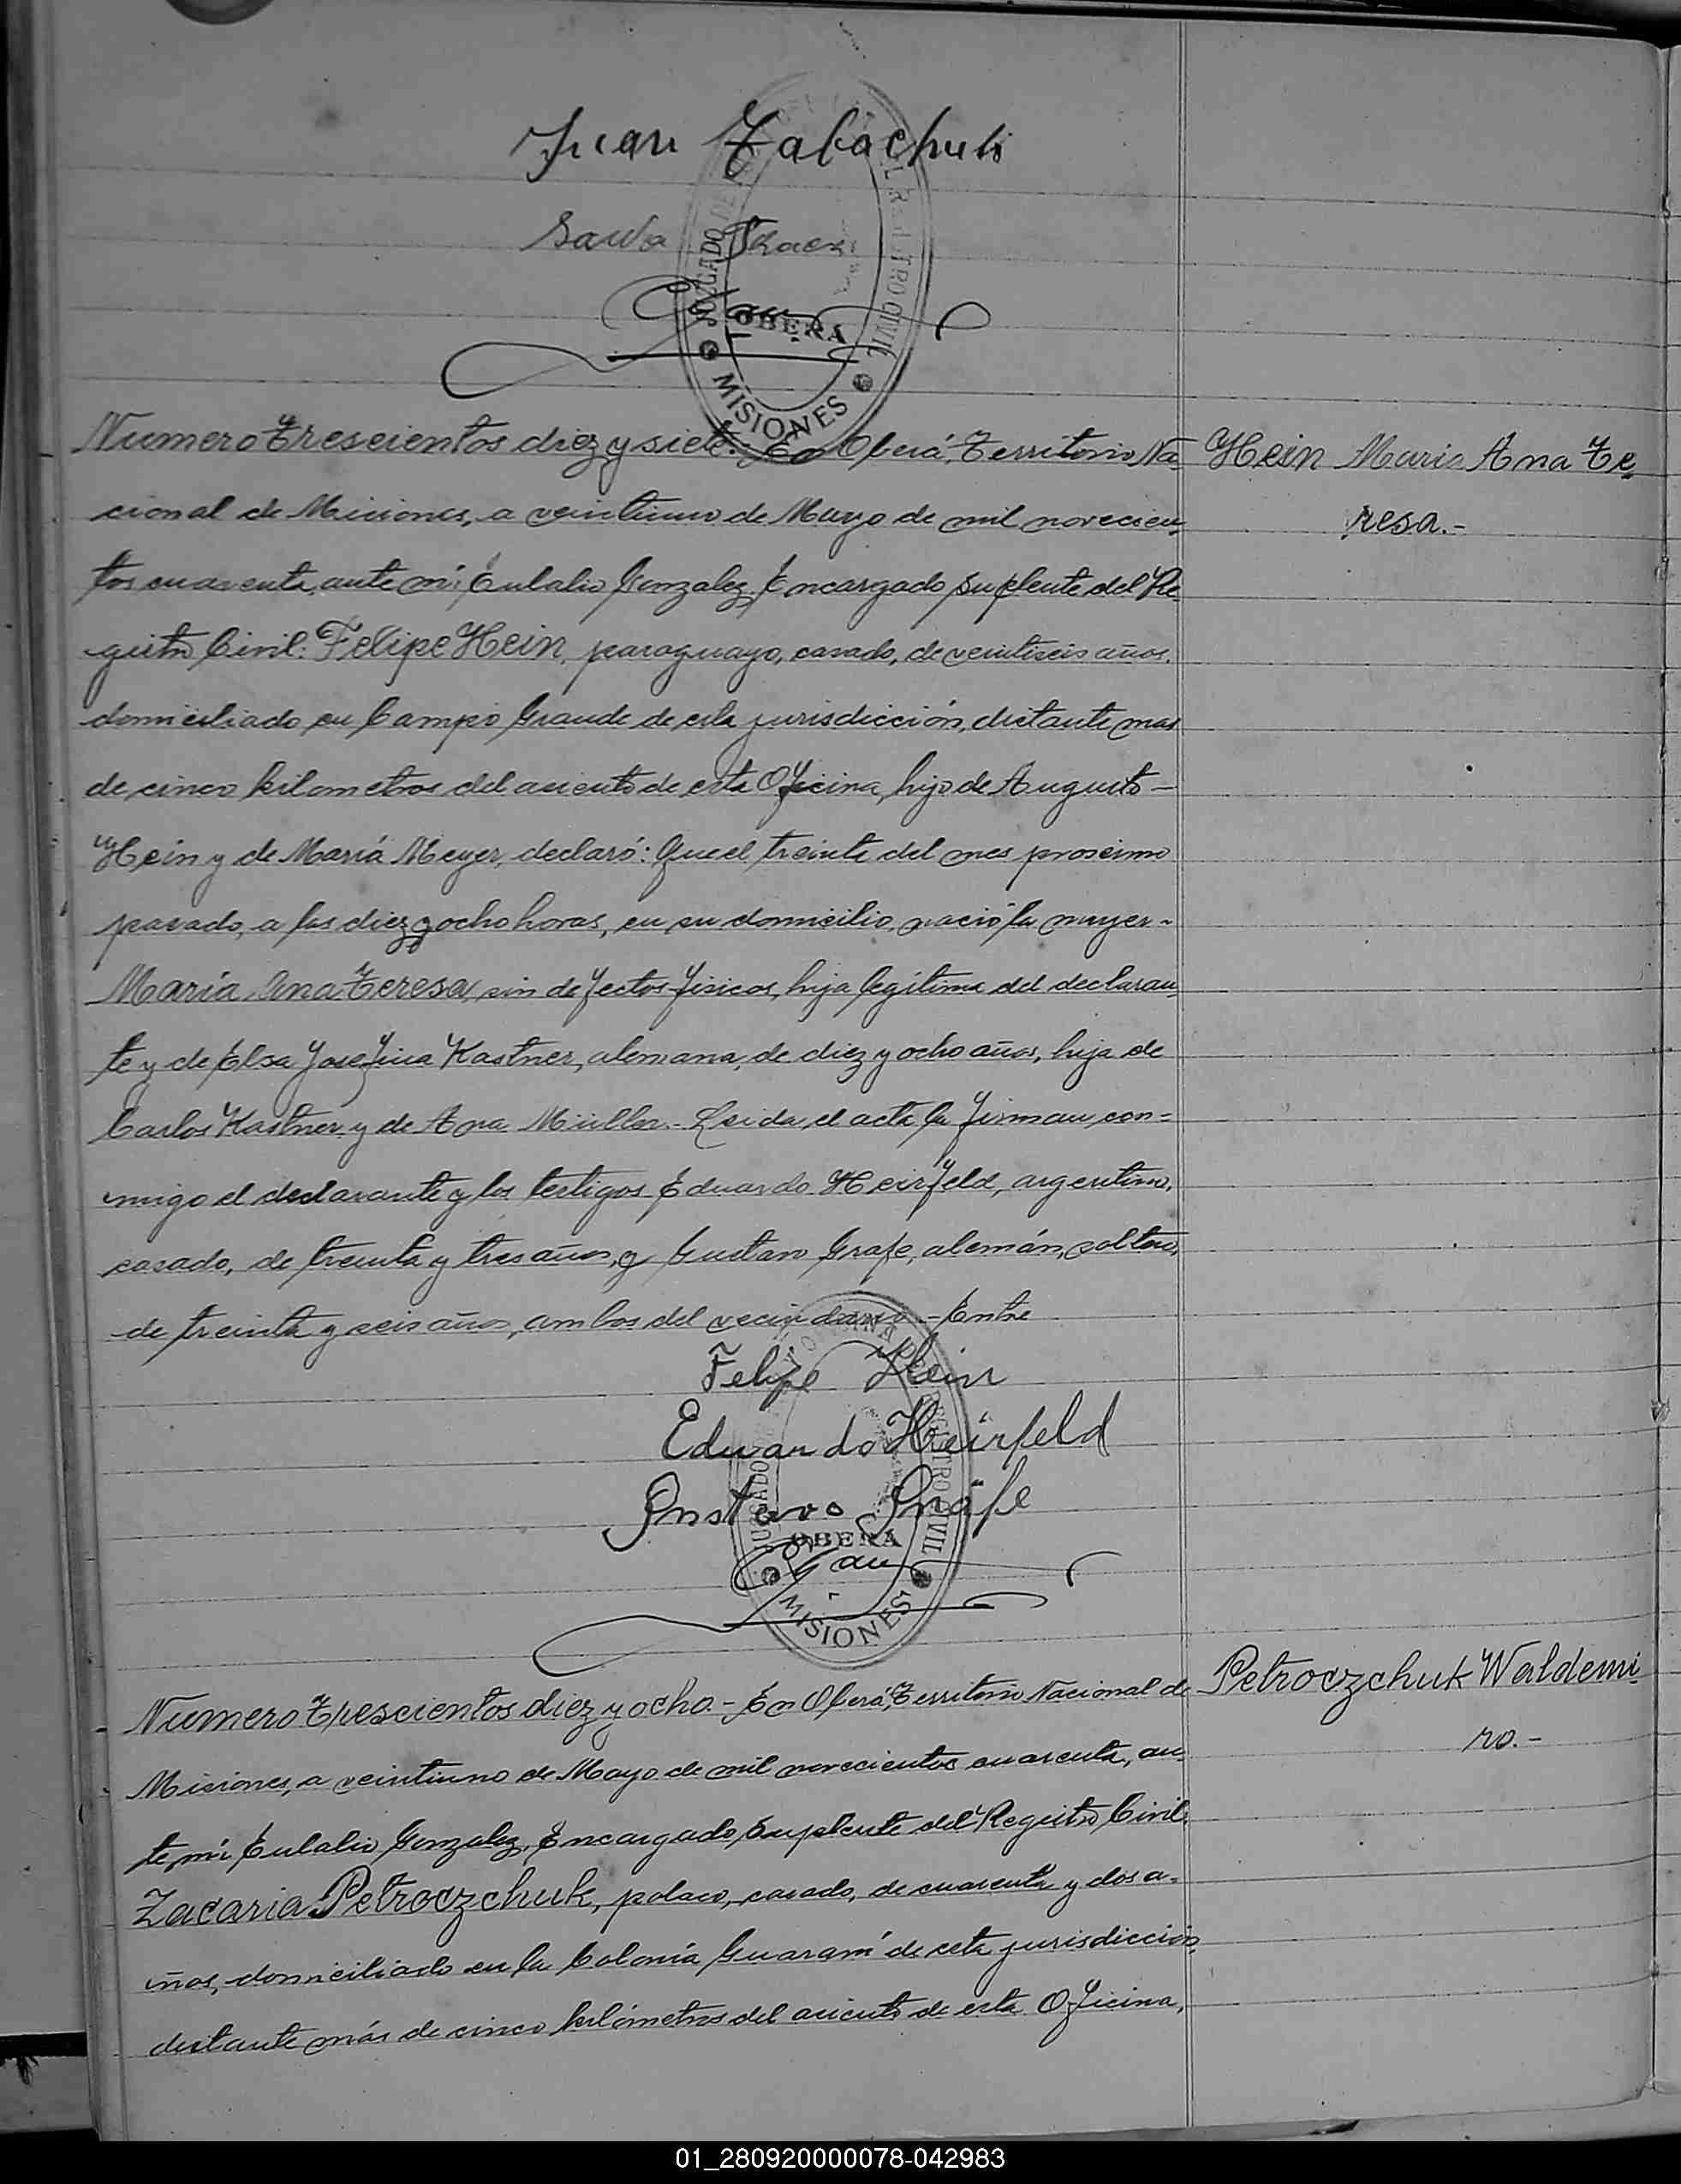 Juan Tabachuk
JUZGADO DE REGISTRO CIVIL
OBERA
MISIONES
Numero Trescientos diez y siete: En Oberá, Territorio Na-
cional de Misiones, a veintiuno de Mayo de mil novecien-
tos cuarenta, ante mí, Eulalio Gonzalez, Encargado Suplente del Re-
gistro Civil: Felipe Hein, paraguayo, casado, de veintiseis años,
domiciliado en Campo Grande de esta jurisdicción, distante mas
de cinco kilometros del asiento de esta Oficina, hijo de Augusto -
Hein y de María Meyer, declaró: Que el treinta del mes proximo
pasado, a las diez y ocho horas, en su domicilio, nació la mujer -
María Ana Teresa, sin defectos fisicos, hija legítima del declaran-
te y de Elsa Josefina Kastner, alemana, de diez y ocho años, hija de
Carlos Kastner y de Ana Müller.- Leida el acta la firman con=
migo el declarante y los testigos Eduardo Heirfeld, argentino,
casado, de treinta y tres años, y Gustavo Grafe, alemán, soltero,
de treinta y seis años, ambos del vecindario.- Entre
Hein Maria Ana Te-
resa.-
Felipe Hein
Eduardo Heirfeld
Gustavo Gräfe
JUZGADO REGISTRO CIVIL
OBERA
MISIONES
Numero Trescientos diez y ocho.- En Oberá, Territorio Nacional de
Misiones, a veintiuno de Mayo de mil novecientos cuarenta, an-
te mí Eulalio Gonzalez, Encargado Suplente del Registro Civil:
Zacaria Petroczchuk, polaco, casado, de cuarenta y dos a-
ños, domiciliado en la Colonia Guaraní de esta jurisdicción,
distante más de cinco kilómetros del asiento de esta Oficina,
Petroczchuk Waldemi-
ro.-
01_280920000078-042983